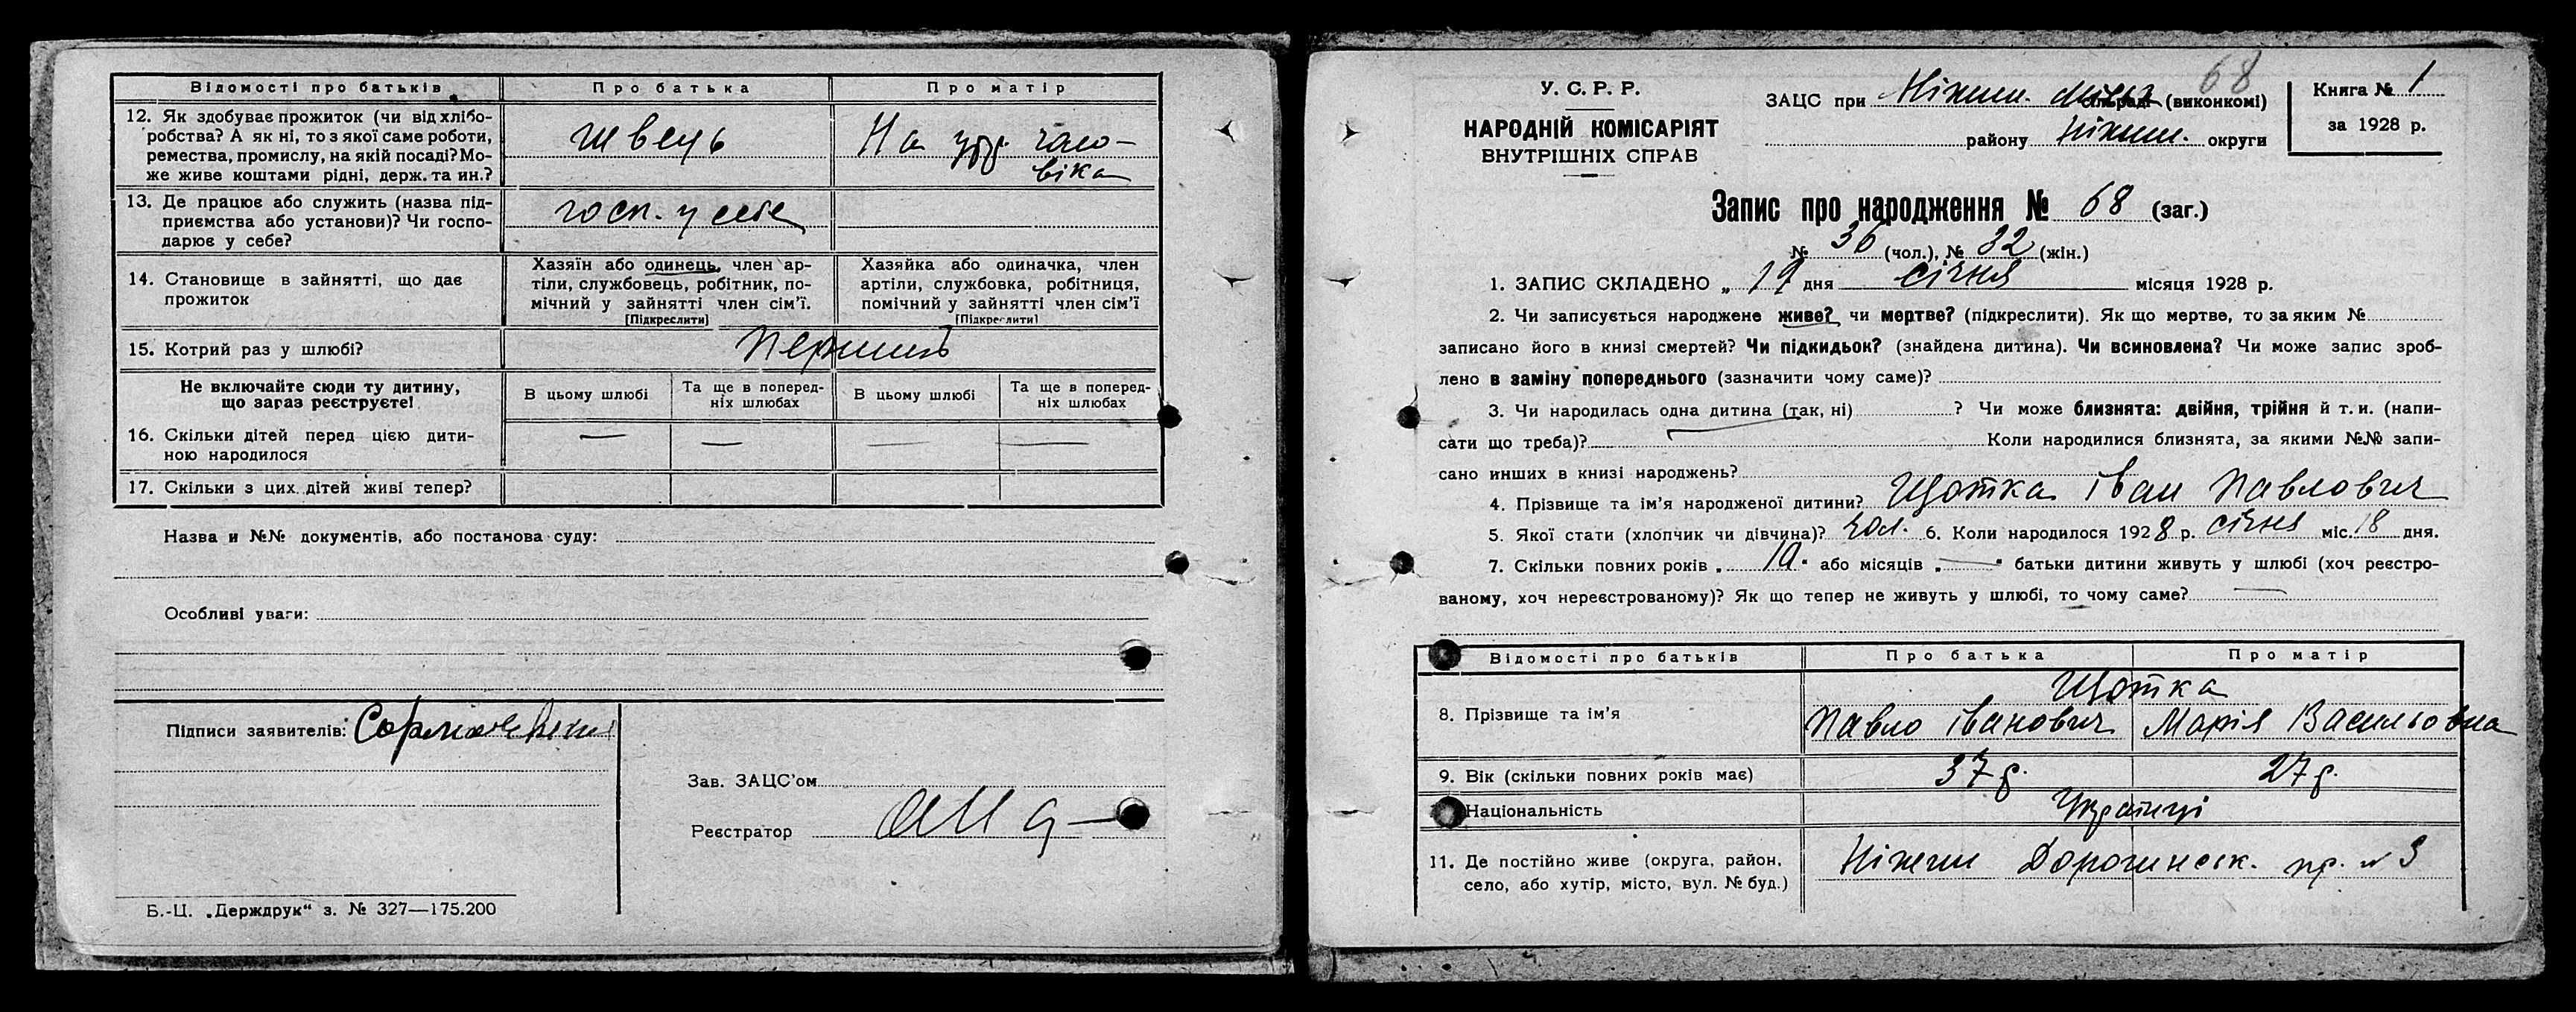 Відомості про батьків Про батька Про матір
12. Як здобуває прожиток (чи від хлібо-
робства? А як ні, то з якої саме роботи,
ремества, промислу, на якій посаді? Мо-
же живе коштами рідні, держ. та ин.?
Швець
На утр. чоло-
віка
13. Де працює або служить (назва під-
приємства або установи)? Чи госпо-
дарює у себе?
госп. у себе
14. Становище в зайнятті, що дає
прожиток
Хазяїн або одинець, член ар-
тіли, службовець, робітник, по-
мічний у зайнятті член сім'ї.
[Підкреслити]
Хазяйка або одиначка, член
артіли, службовка, робітниця,
помічний у зайнятті член сім'ї
[Підкреслити]
15. Котрий раз у шлюбі?
Не включайте сюди ту дитину,
що зараз реєструєте!
В цьому шлюбі
Та ще в поперед-
ніх шлюбах
В цьому шлюбі
Та ще в поперед-
ніх шлюбах
16. Скільки дітей перед цією дити-
ною народилося
— — — —
17. Скільки з цих дітей живі тепер?
Назва и №№ документів, або постанова суду:
Особливі уваги:
Підписи заявителів:
Зав. ЗАЦС'ом
Реєстратор
Б.-Ц. „Держдрук“ з. № 327—175.200
68
У. С. Р. Р.
НАРОДНІЙ КОМІСАРІЯТ
ВНУТРІШНІХ СПРАВ
ЗАЦС при Ніжин. (виконкомі)
району Ніжин. округи
Книга № 1
за 1928 р.
Запис про народження № 68 (заг.)
№ 36 (чол.), № 32 (жін.)
1. ЗАПИС СКЛАДЕНО „ 19 дня січня місяця 1928 р.
2. Чи записується народжене живе? чи мертве? (підкреслити). Як що мертве, то за яким №
записано його в книзі смертей? Чи підкидьок? (знайдена дитина). Чи всиновлена? Чи може запис зроб-
лено в заміну попереднього (зазначити чому саме)?
3. Чи народилась одна дитина (так, ні) ? Чи може близнята: двійня, трійня й т. и. (напи-
сати що треба)? Коли народилися близнята, за якими №№ запи-
сано инших в книзі народжень?
4. Прізвище та ім'я народженої дитини? Щотка Іван Павлович
5. Якої стати (хлопчик чи дівчина)? чол. 6. Коли народилося 1928 р. січня міс. 18 дня.
7. Скільки повних років „ або місяців „ — “ батьки дитини живуть у шлюбі (хоч реєстро-
ваному, хоч нереєстрованому)? Як що тепер не живуть у шлюбі, то чому саме? —
Відомості про батьків Про батька Про матір
8. Прізвище та ім'я
Щотка
Павло Іванович Марія Васильовна
9. Вік (скільки повних років має) 37 р. 27 р.
Національність Українці
11. Де постійно живе (округа, район,
село, або хутір, місто, вул. № буд.)
Ніжин Дорогинськ. пр. № 3